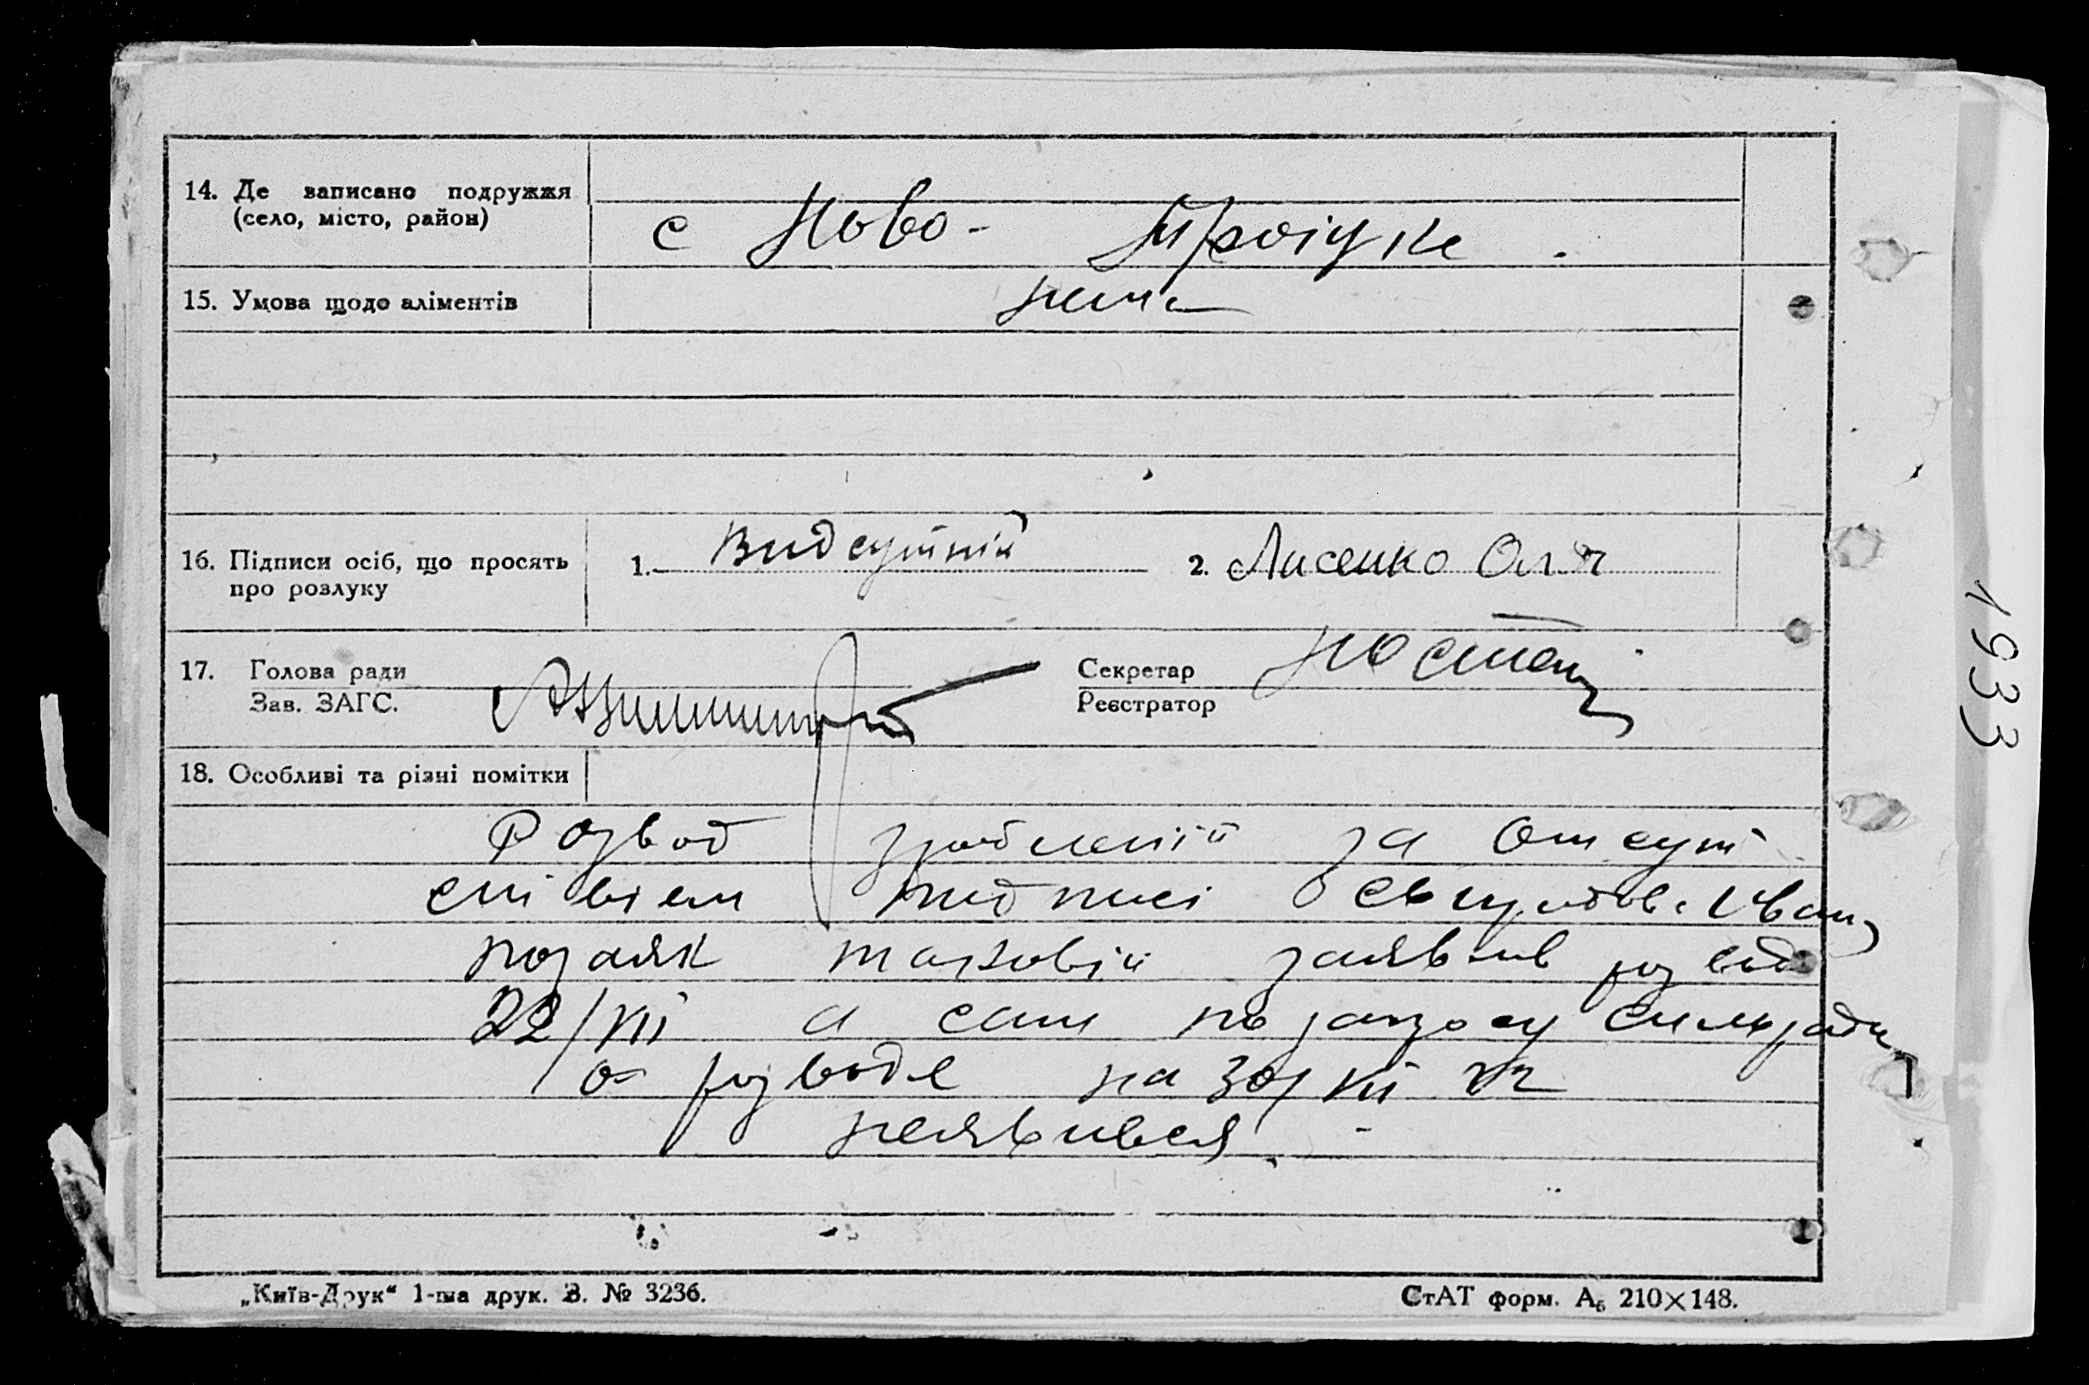 14. Де записано подружжя
(село, місто, район)
с Ново- Троіцке.
15. Умова щодо аліментів
нема
16. Підписи осіб, що просять
про розлуку
1. Видсутній 2. Лисенко Оля
17. Голова ради
Зав. ЗАГС.
Секретар
Реєстратор
18. Особливі та різні помітки
Розвод зроблений за отсут
ствієм підписі Іван
позаяк таковій заявив розвод
22/VII а сам по запросу сильради
о розводе на 30/VII
неявився.
1933
„Київ-Друк“ 1-ша друк. З. № 3236.
СтАТ форм. А₅ 210×148.